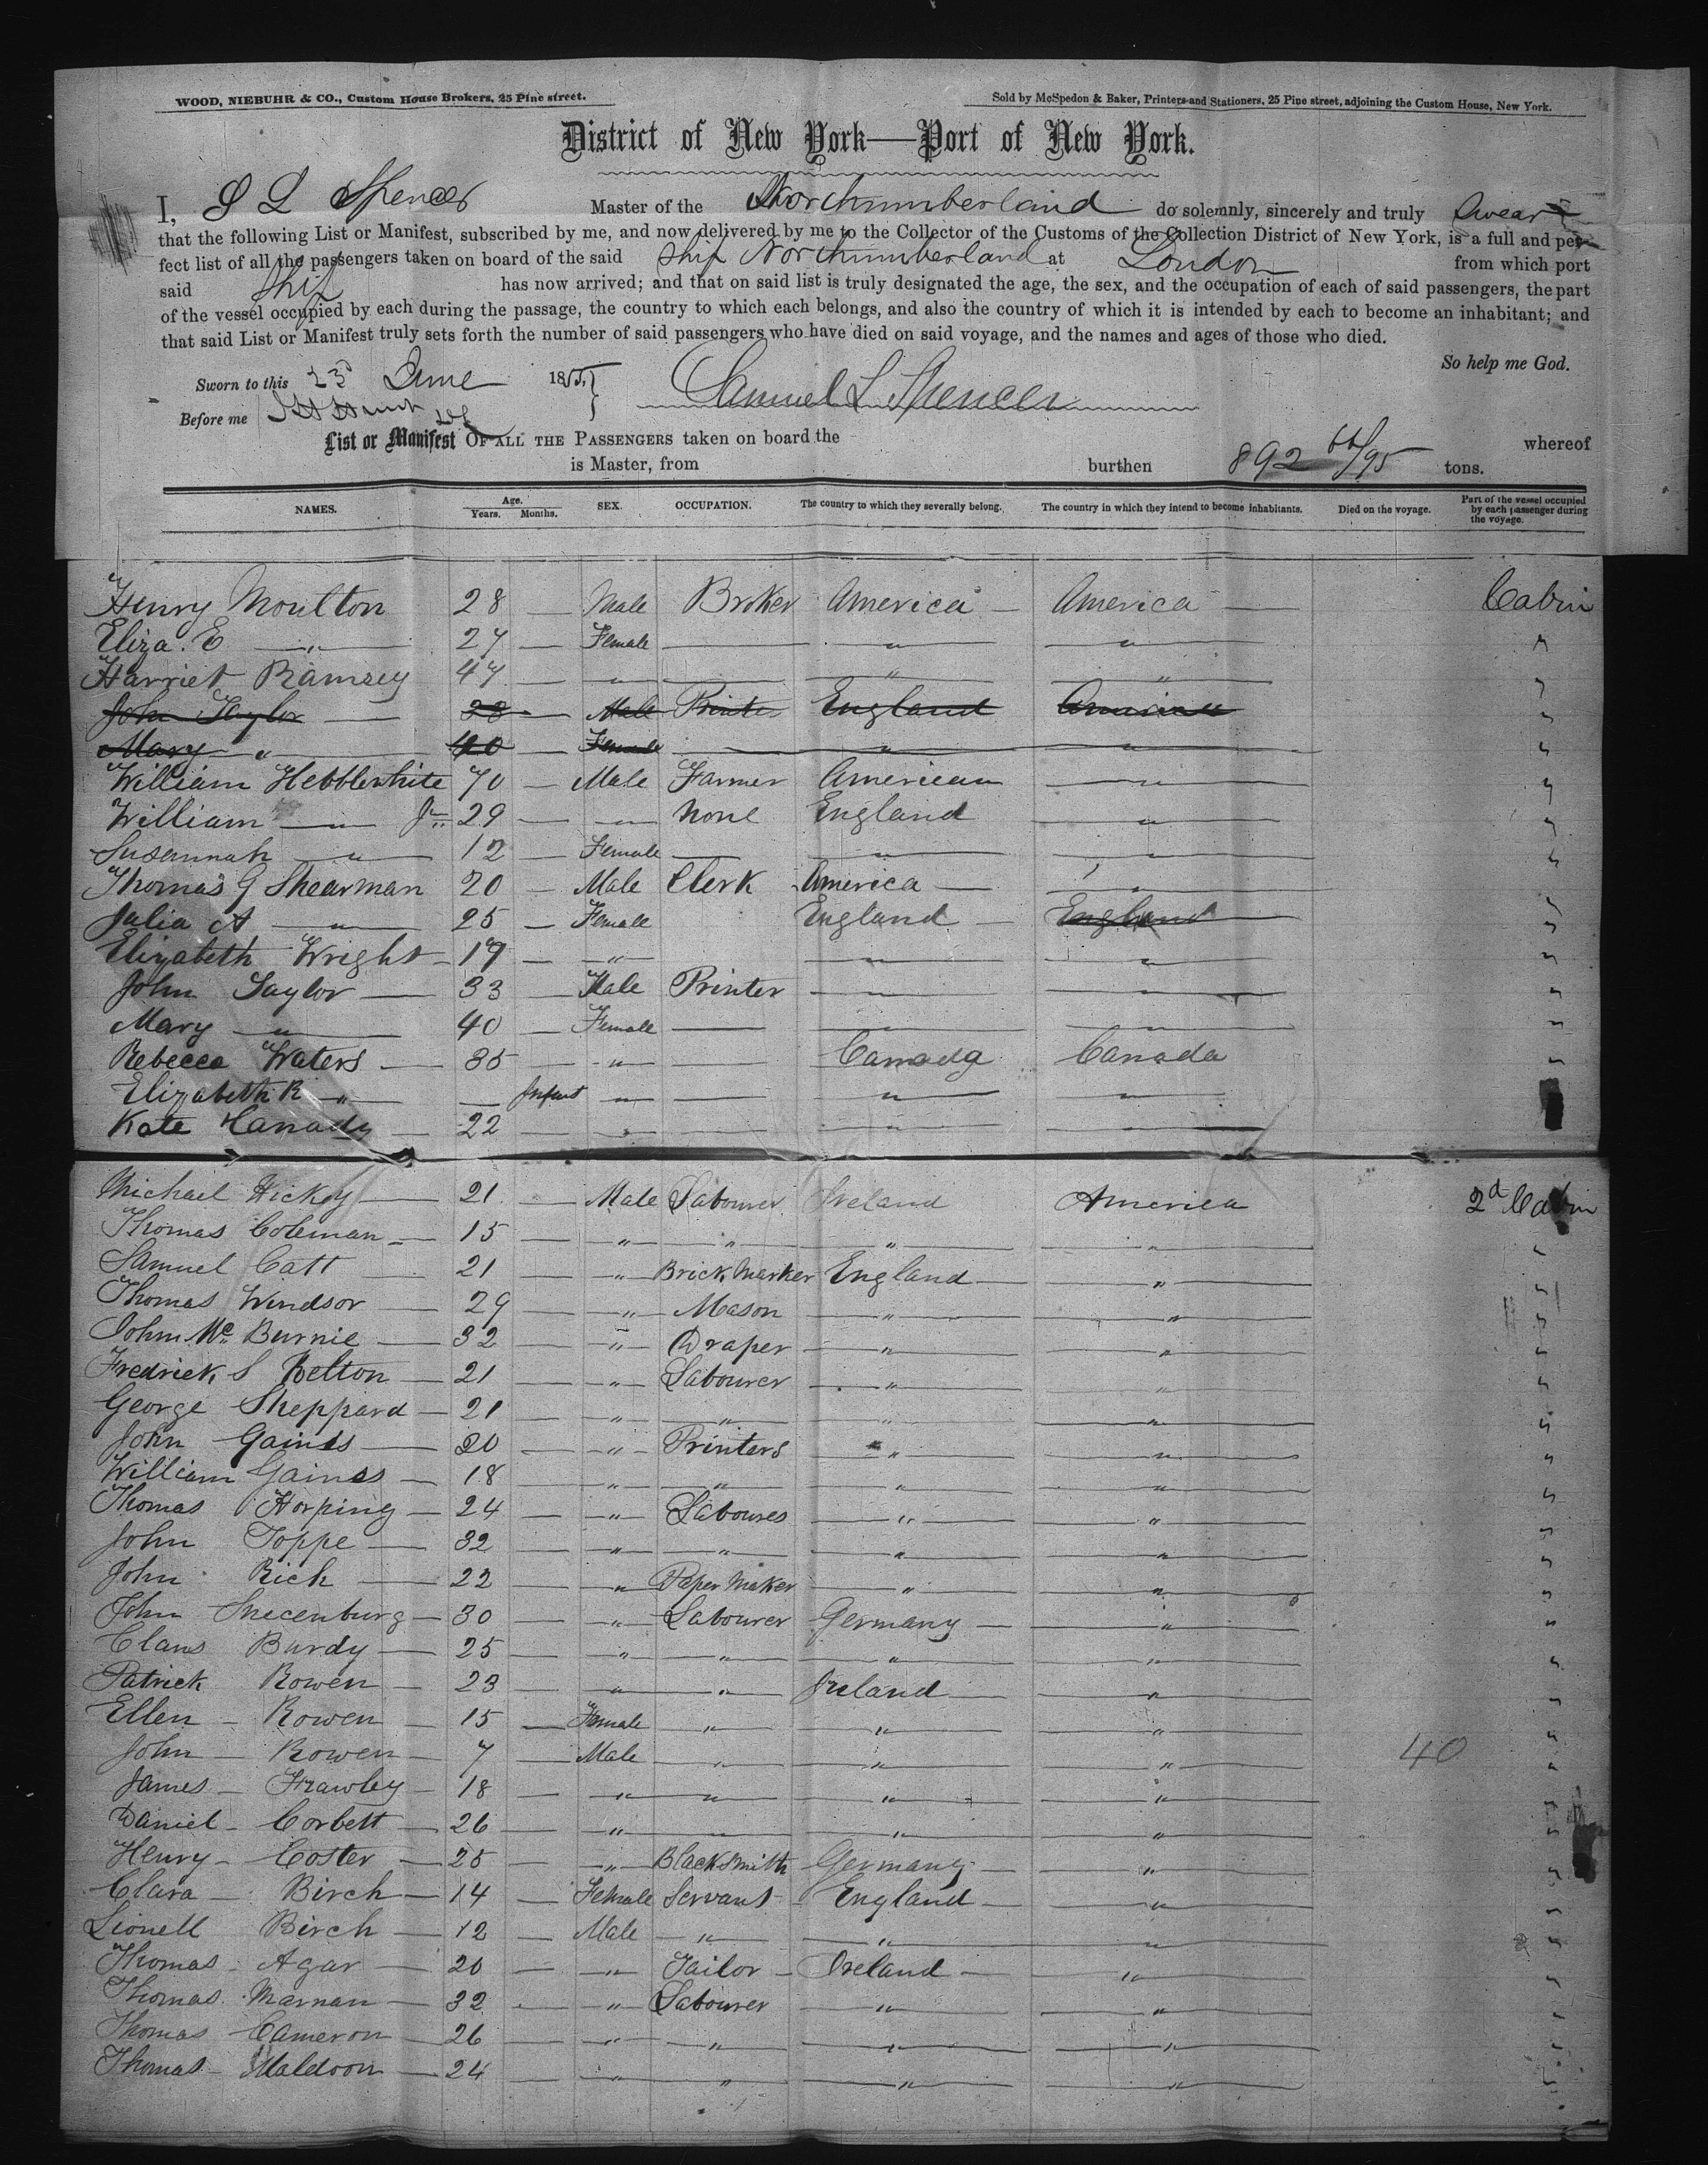 WOOD, NIEBUHR & CO., Custom House Brokers, 25 Pine street. Sold by McSpedon & Baker, Printers and Stationers, 25 Pine street, adjoining the Custom House, New York.
District of New York—Port of New York.
I, S L Spencer Master of the Northumberland do solemnly, sincerely and truly Swear
that the following List or Manifest, subscribed by me, and now delivered by me to the Collector of the Customs of the Collection District of New York, is a full and per-
fect list of all the passengers taken on board of the said Ship Northumberland at London from which port
said Ship has now arrived; and that on said list is truly designated the age, the sex, and the occupation of each of said passengers, the part
of the vessel occupied by each during the passage, the country to which each belongs, and also the country of which it is intended by each to become an inhabitant; and
that said List or Manifest truly sets forth the number of said passengers who have died on said voyage, and the names and ages of those who died.
So help me God.
Sworn to this 23d June 1855 Samuel L Spencer
Before me
List or Manifest OF ALL THE PASSENGERS taken on board the whereof
is Master, from burthen 892 66/95 tons.
NAMES. Age. Years. Months. SEX. OCCUPATION. The country to which they severally belong. The country in which they intend to become inhabitants. Died on the voyage. Part of the vessel occupied by each passenger during the voyage.
Henry Moulton 28 — Male Broker America — America — Cabin
Eliza. E — " — 27 — Female — " — — " — "
Harriet Ramsey 47 — " — — " — — " — "
John Taylor — 33 — Male Printer England America "
Mary " — 40 — Female — " — — " — "
William Hebblewhite 70 — Male Farmer American — " — "
William — " — Jr 29 — " — None England — " — "
Susannah — " — 12 — Female — — " — — " — "
Thomas G Shearman 20 — Male Clerk America — — " — "
Julia A — " — 25 — Female England — England "
Elizabeth Wright — 19 — " — — " — — " — "
John Taylor — 33 — Male Printer — " — — " — "
Mary — " — 40 — Female — — " — — " — "
Rebecca Waters — 35 — " — — Canada Canada "
Elizabeth R — " — — Infant — " — — — " — — " —
Kate Canady — 22 — " — — — " — — " —
Michael Hickey — 21 — Male Labourer Ireland America 2d Cabin
Thomas Coleman — 15 — " — " — " — " — "
Samuel Catt — 21 — " — Brick Marker England — " — "
Thomas Windsor — 29 — " — Mason — " — " — "
John Mc Burnie — 32 — " — Draper — " — " — "
Fredrick S Belton — 21 — " — Labourer — " — " — "
George Sheppard — 21 — " — " — " — " — "
John Gaines — 20 — " — Printers — " — " — "
William Gaines — 18 — " — " — " — " — "
Thomas Horping — 24 — " — Laboures — " — " — "
John Toppe — 32 — " — " — " — " — "
John Rich — 22 — " — Paper Maker — " — " — "
John — 30 — " — Labourer Germany — " — "
Claus Burdy — 25 — " — " — " — " — "
Patrick Rowen — 23 — " — " — Ireland — " — "
Ellen — Rowen — 15 — Female — " — " — " — "
John — Rowen — 7 — Male — " — " — " — 40 "
James — Frawley — 18 — " — " — " — " — "
Daniel — Corbett — 26 — " — " — " — " — "
Henry — Coster — 25 — " — Blacksmith Germany — " — "
Clara — Birch — 14 — Female Servant — England — " — "
Lionell Birch — 12 — Male — " — " — " — "
Thomas — Agar — 20 — " — Tailor — Ireland — " — "
Thomas Marnan — 32 — " — Labourer — " — " — "
Thomas Cameron — 26 — " — " — " — " — "
Thomas — Maldoon — 24 — " — " — " — " — "